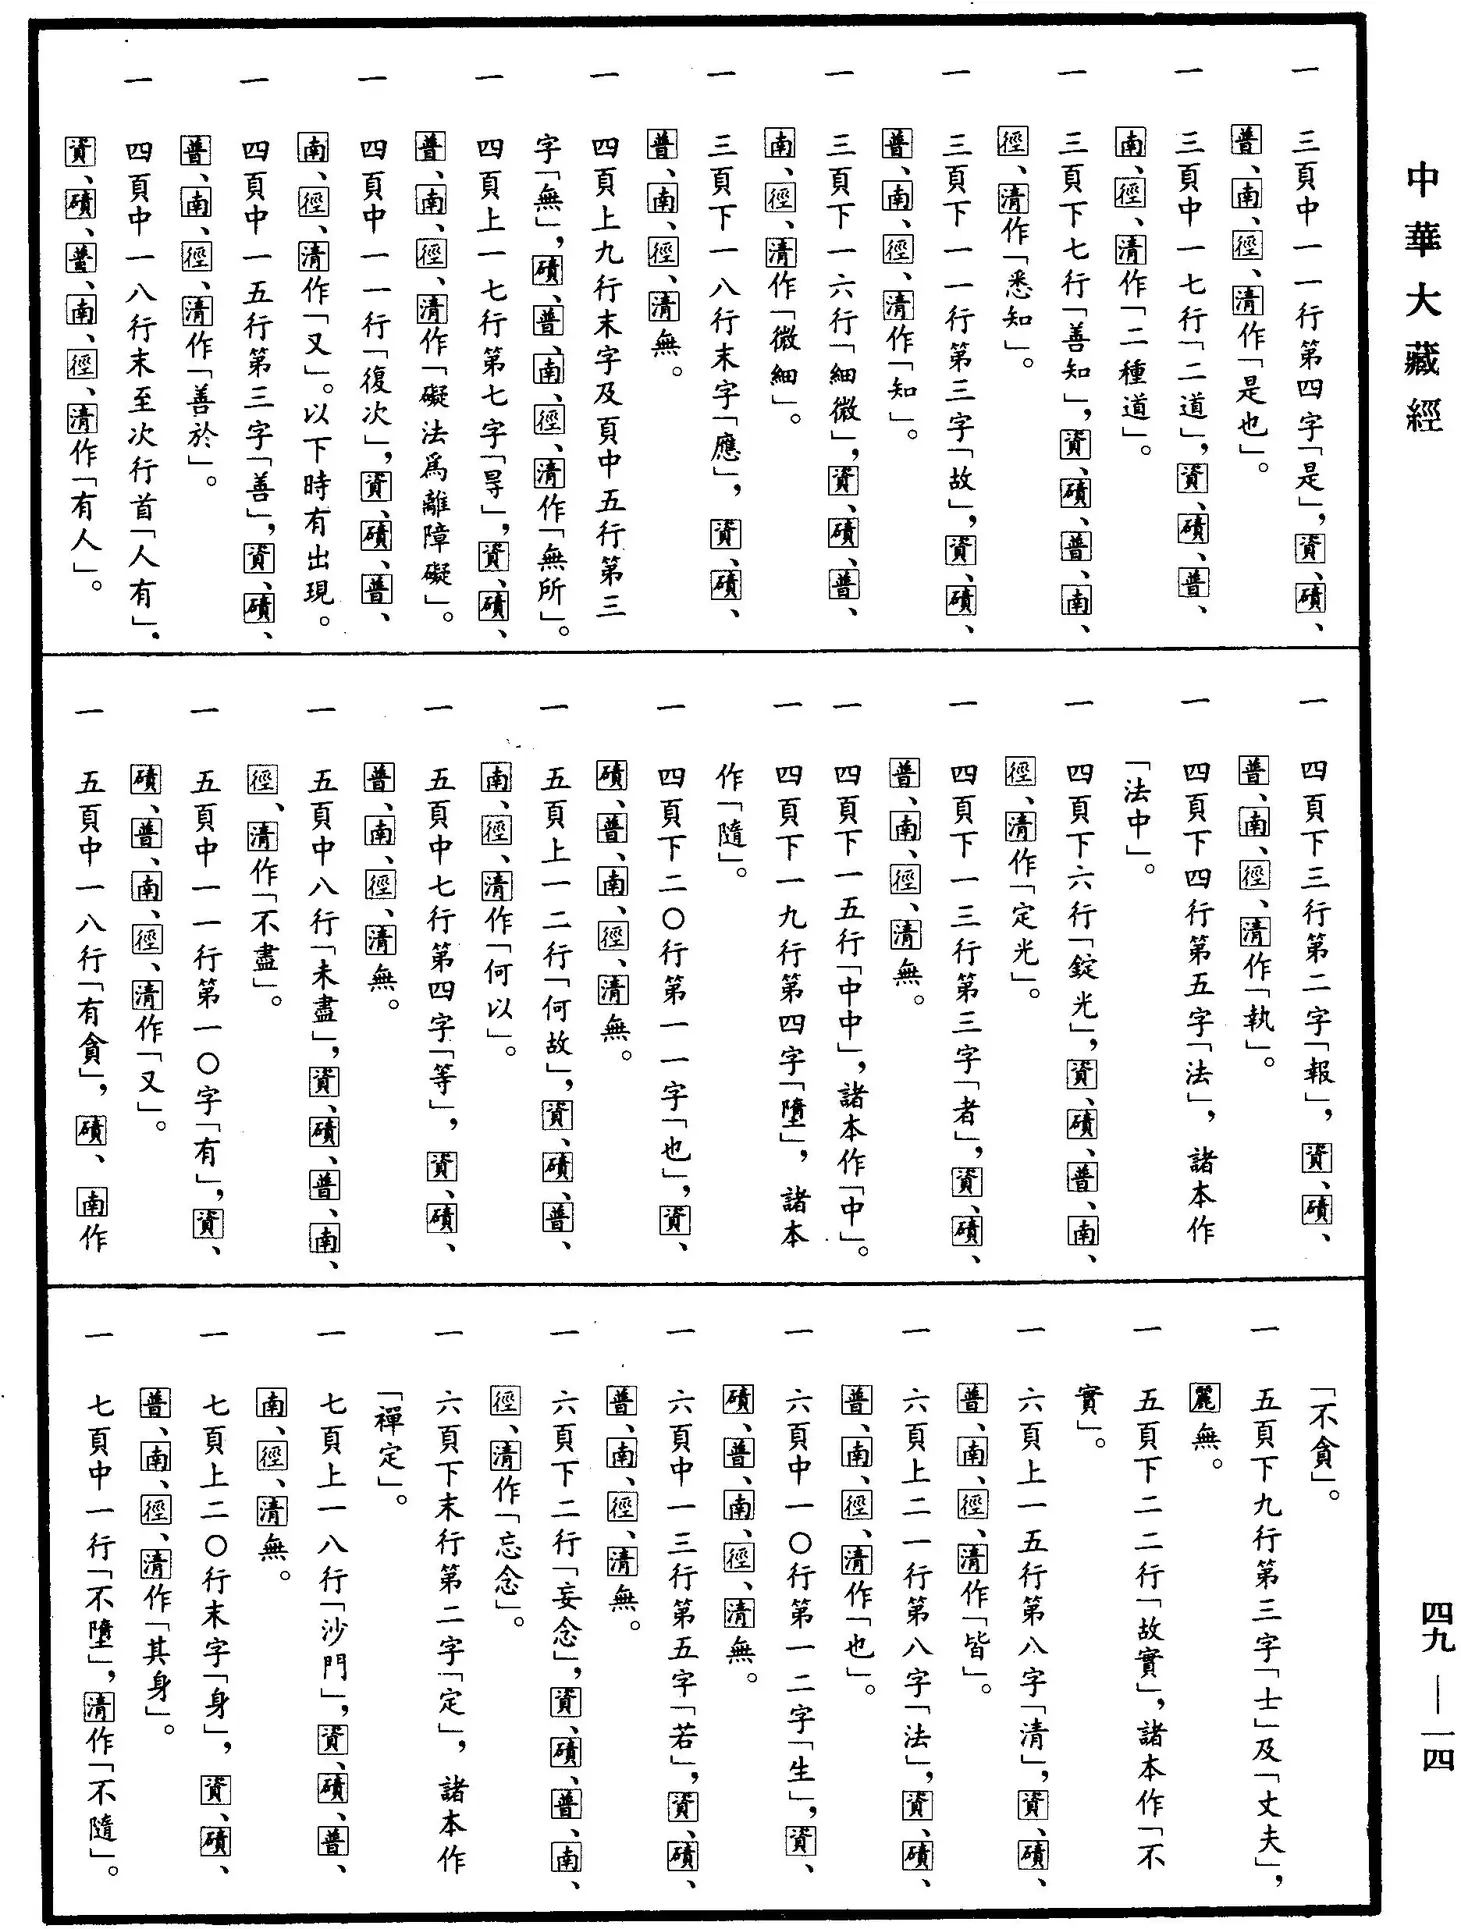 中華大藏經
一 三頁中一一行第四字「是」，資、磧、
普、南、徑、清作「是也」。
一 三頁中一七行「二道」，資、磧、普、
南、徑、清作「二種道」。
一 三頁下七行「善知」，資、磧、普、南、
徑、清作「悉知」。
一 三頁下一一行第三字「故」，資、磧、
普、南、徑、清作「知」。
一 三頁下一六行「細微」，資、磧、普、
南、徑、清作「微細」。
一 三頁下一八行末字「應」，資、磧、
普、南、徑、清無。
一 四頁上九行末字及頁中五行第三
字「無」，磧、普、南、徑、清作「無所」。
一 四頁上一七行第七字「㝵」，資、磧、
普、南、徑、清作「礙法爲離障礙」。
一 四頁中一一行「復次」，資、磧、普、
南、徑、清作「又」。以下時有出現。
一 四頁中一五行第三字「善」，資、磧、
普、南、徑、清作「善於」。
一 四頁中一八行末至次行首「人有」，
資、磧、普、南、徑、清作「有人」。
一 四頁下三行第二字「報」，資、磧、
普、南、徑、清作「執」。
一 四頁下四行第五字「法」，諸本作
「法中」。
一 四頁下六行「錠光」，資、磧、普、南、
徑、清作「定光」。
一 四頁下一三行第三字「者」，資、磧、
普、南、徑、清無。
一 四頁下一五行「中中」，諸本作「中」。
一 四頁下一九行第四字「墮」，諸本
作「隨」。
一 四頁下二〇行第一一字「也」，資、
磧、普、南、徑、清無。
一 五頁上一二行「何故」，資、磧、普、
南、徑、清作「何以」。
一 五頁中七行第四字「等」，資、磧、
普、南、徑、清無。
一 五頁中八行「未盡」，資、磧、普、南、
徑、清作「不盡」。
一 五頁中一一行第一〇字「有」，資、
磧、普、南、徑、清作「又」。
一 五頁中一八行「有貪」，磧、南作
「不貪」。
一 五頁下九行第三字「士」及「丈夫」，
麗無。
一 五頁下二二行「故實」，諸本作「不
實」。
一 六頁上一五行第八字「清」，資、磧、
普、南、徑、清作「皆」。
一 六頁上二一行第八字「法」，資、磧、
普、南、徑、清作「也」。
一 六頁中一〇行第一二字「生」，資、
磧、普、南、徑、清無。
一 六頁中一三行第五字「若」，資、磧、
普、南、徑、清無。
一 六頁下二行「妄念」，資、磧、普、南、
徑、清作「忘念」。
一 六頁下末行第二字「定」，諸本作
「禪定」。
一 七頁上一八行「沙門」，資、磧、普、
南、徑、清無。
一 七頁上二〇行末字「身」，資、磧、
普、南、徑、清作「其身」。
一 七頁中一行「不墮」，清作「不隨」。
四九—一四